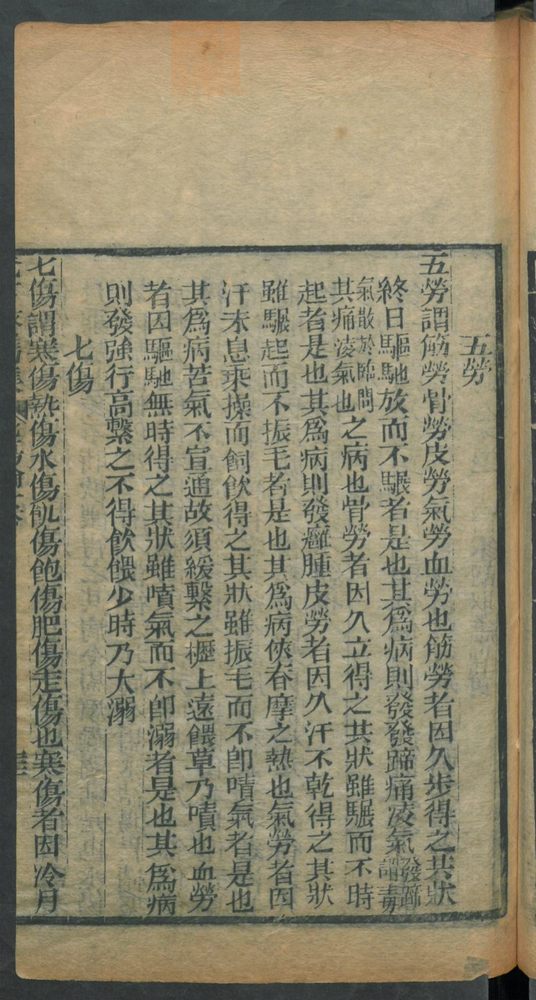 五勞
五勞謂筋勞骨勞皮勞氣勞血勞也筋勞者因久步得之其狀
終日驅馳放而不驟者是也其爲病則發發蹄痛凌氣發蹄謂毒
氣散於蹄間其痛凌氣也之病也骨勞者因久立得之其狀雖驟而不時
起者是也其爲病則發癰腫皮勞者因久汗不乾得之其狀
雖驟起而不振毛者是也其爲病俠脊摩之熱也氣勞者因
汗未息乘操而飼飲得之其狀雖振毛而不卽噴氣者是也
其爲病苦氣不宣通故須緩繫之櫪上遠餧草乃噴也血勞
者因驅馳無時得之其狀雖噴氣而不卽溺者是也其爲病
則發強行高繫之不得飲餧少時乃大溺
七傷
七傷謂寒傷熱傷水傷飢傷飽傷肥傷走傷也寒傷者因冷月